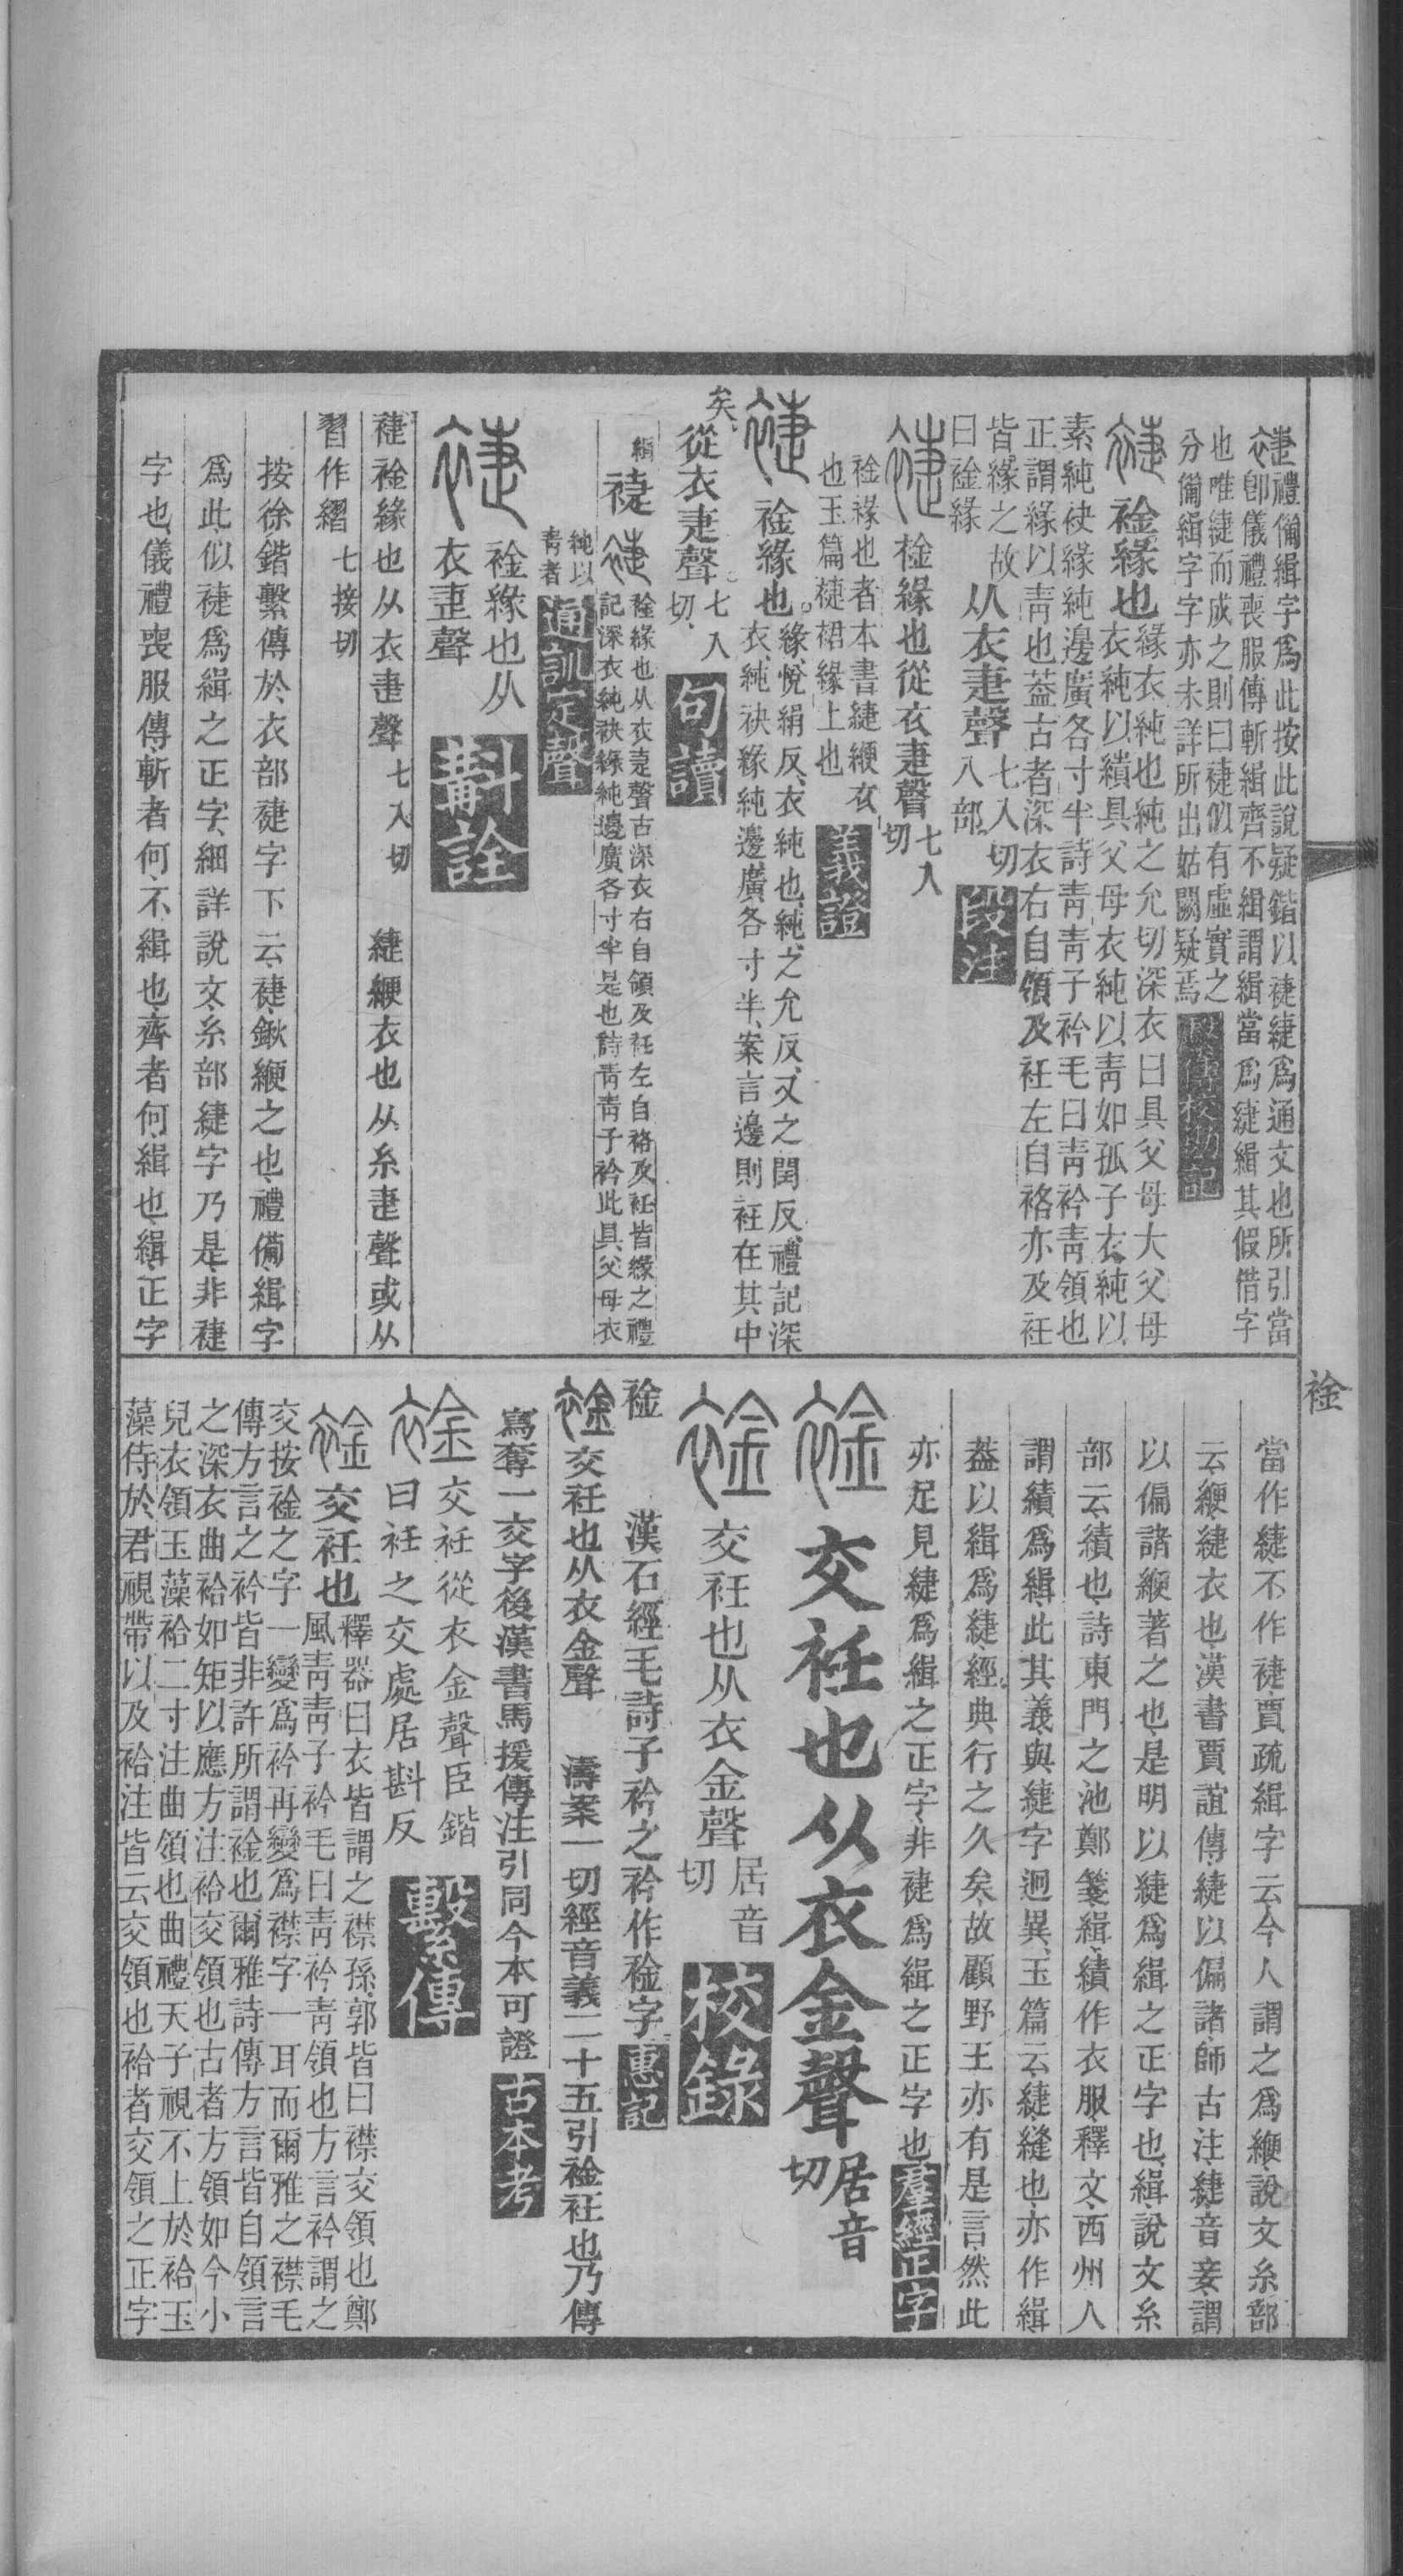 禮備緝字爲此按此說疑鍇以䙿緁爲通文也所引當
卽儀禮喪服傳斬緝齊不緝謂緝當爲緁緝其假借字
也唯緁而成之則曰䙿似有虛實之
分備緝字字亦未詳所出姑闕疑焉 段傳校勘記
䙿 裣緣也 緣衣純也純之允切深衣曰具父母大父母
衣純以繢具父母衣純以靑如孤子衣純以
素純袂緣純邊廣各寸半詩靑靑子衿毛曰靑衿靑領也
正謂緣以靑也葢古者深衣右自領及衽左自袼亦及衽
皆緣之故
曰裣緣 从衣疌聲 七入切八部 段注
䙿 裣緣也從衣疌聲 七入切
裣緣也者本書緁緶衣
也玉篇䙿裙緣上也 義證
䙿 裣緣也 緣悅絹反衣純也純之允反又之閏反禮記深
衣純袂緣純邊廣各寸半案言邊則衽在其中
矣 從衣疌聲 七入切 句讀
緝 䙿 裣緣也从衣疌聲古深衣右自領及衽左自袼及衽皆緣之禮
記深衣純袂緣純邊廣各寸半是也詩靑靑子衿此具父母衣
純以
靑者 通訓定聲
䙿 裣緣也从
衣疌聲 斠詮
䙿裣緣也从衣疌聲 七入切 緁緶衣也从糸疌聲或从
習作緝 七接切
按徐鍇繫傳於衣部䙿字下云䙿鍬緶之也禮備緝字
爲此似䙿爲緝之正字細詳說文糸部緁字乃是非䙿
字也儀禮喪服傳斬者何不緝也齊者何緝也緝正字
裣
當作緁不作䙿賈疏緝字云今人謂之爲緶說文糸部
云緶緁衣也漢書賈誼傳緁以偏諸師古注緁音妾謂
以偏諸緶著之也是明以緁爲緝之正字也緝說文糸
部云績也詩東門之池鄭箋緝績作衣服釋文西州人
謂績爲緝此其義與緁字迥異玉篇云緁縫也亦作緝
葢以緝爲緁經典行之久矣故顧野王亦有是言然此
亦足見緁爲緝之正字非䙿爲緝之正字也 羣經正字
裣 交衽也从衣金聲 居音切
裣 交衽也从衣金聲 居音切 校錄
裣 漢石經毛詩子衿之衿作裣字 惠記
裣 交衽也从衣金聲 濤案一切經音義二十五引裣衽也乃傳
寫奪一交字後漢書馬援傳注引同今本可證 古本考
裣 交衽從衣金聲臣鍇
曰衽之交處居斟反 繫傳
裣 交衽也 釋器曰衣皆謂之襟孫郭皆曰襟交領也鄭
風靑靑子衿毛曰靑衿靑領也方言衿謂之
交按裣之字一變爲衿再變爲襟字一耳而爾雅之襟毛
傳方言之衿皆非許所謂裣也爾雅詩傳方言皆自領言
之深衣曲袷如矩以應方注袷交領也古者方領如今小
兒衣領玉藻袷二寸注曲領也曲禮天子視不上於袷玉
藻侍於君視帶以及袷注皆云交領也袷者交領之正字